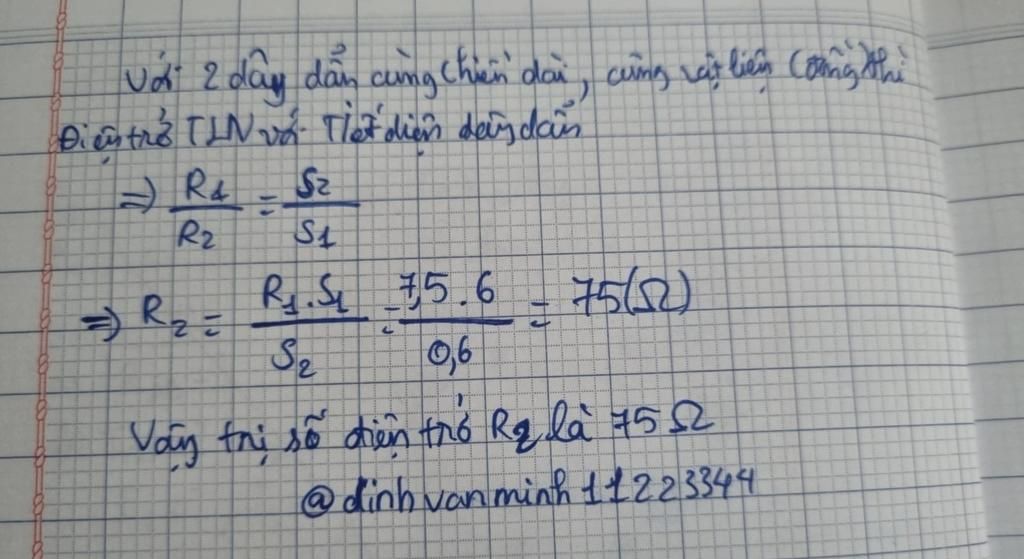 Với 2 dây dẫn cùng chiều dài, cùng vật liệu (đồng) thì
Điện trở TLN với Tiết diện dây dẫn
=> R1/R2 = S2/S1
=> R2 = R1.S1/S2 = 7,5.6/0,6 = 75(Ω)
Vậy trị số điện trở R2 là 75Ω
@dinhvanminh11223344